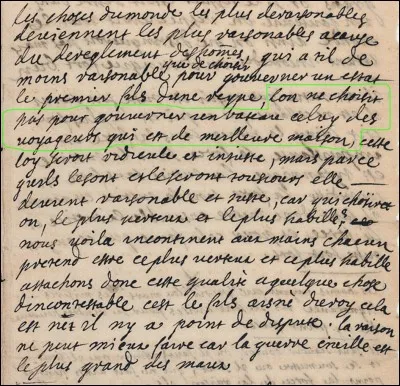 les choses du monde les plus deraisonables
deviennent les plus raisonables a cause
du dereglement des homes, qui a til de
que de choisir
moins raisonable pour gouverner un estat
le premier fils dune reyne, lon ne choisit
pas pour gouverner un bateau celuy des
voyageurs qui est de meilleure maison, cette
loy seroit ridicule et iniuste, mais parce
quils le sont et le seront tousiours elle
devient raisonable et iuste, car qui choisira
on, le plus vertueux et le plus habille
nous voila incontinent aux mains chacun
pretend estre ce plus vertueux et ce plus habille
attachons donc cette qualité a quelque chose
dincontestable cest le fils aisné du roy cela
est net il ny a point de dispute. la raison
ne peut mieux faire car la guerre civille est
le plus grand des maux